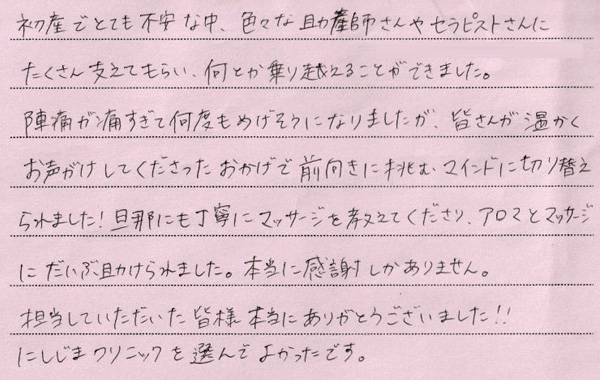 初産でとても不安な中、色々な助産師さんやセラピストさんに
たくさん支えてもらい、何とか乗り越えることができました。
陣痛が痛すぎて何度もめげそうになりましたが、皆さんが温かく
お声がけしてくださったおかげで前向きに挑むマインドに切り替え
られました！旦那にも丁寧にマッサージを教えてくださり、アロマとマッサージ
にだいぶ助けられました。本当に感謝しかありません。
担当していただいた皆様本当にありがとうございました!!
にしじまクリニックを選んでよかったです。